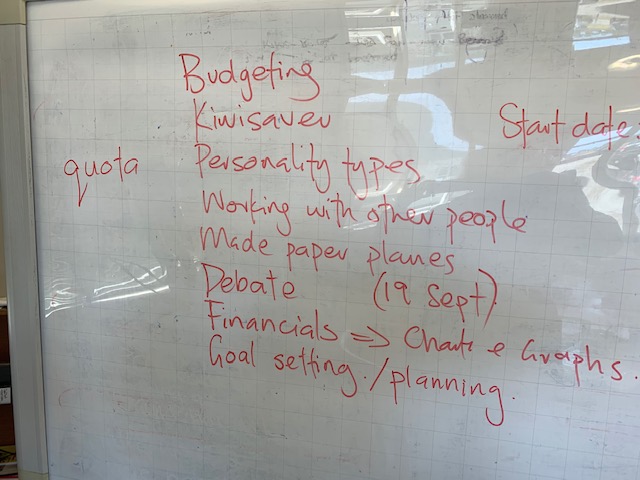 Budgeting
Kiwisaver
Start date:
quota
Personality types
Working with other people
Made paper planes
Debate (19 Sept).
Financials => Charts & Graphs.
Goal setting./planning.